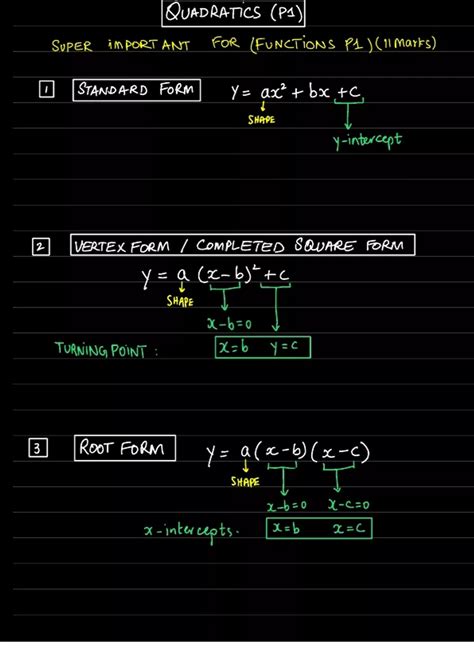 QUADRATICS (P1)
SUPER IMPORTANT FOR (FUNCTIONS P1) (11 Marks)
1 STANDARD FORM y = ax² + bx + c
SHAPE
y-intercept
2 VERTEX FORM / COMPLETED SQUARE FORM
y = a (x-b)² + c
SHAPE
x-b=0
TURNING POINT : x=b y=c
3 ROOT FORM y = a(x-b)(x-c)
SHAPE
x-b=0 x-c=0
x-intercepts. x=b x=c